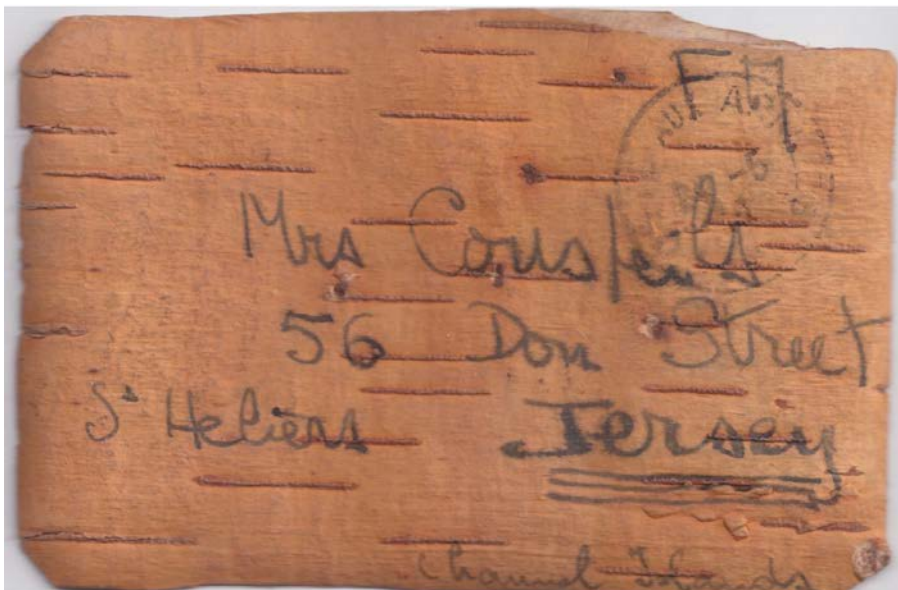 FM
Mrs
56 Don Street
St Heliers Jersey
Channel Islands